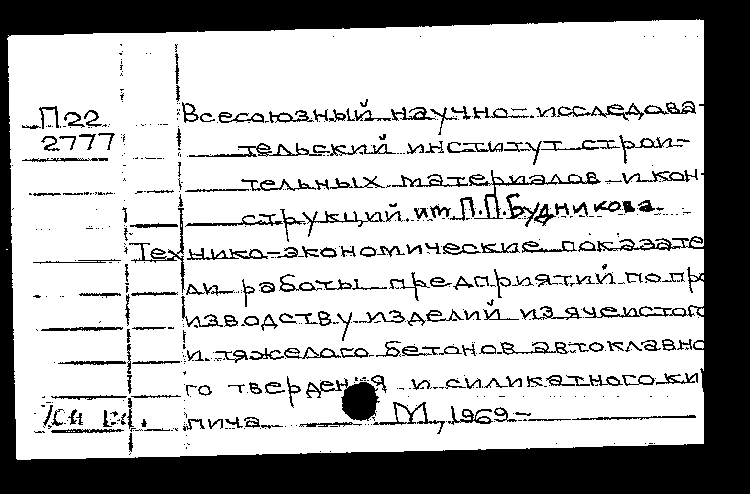 П22
2777
Всесоюзный научно-исследова-
тельский институт строи-
тельных материалов и кон-
струкций им. П.П.Будникова.
Технико-экономические показате
ли работы предприятий по про
изводству изделий из ячеистого
и тяжелого бетонов автоклавно
го твердения и силикатного кир
пича М., 1969-